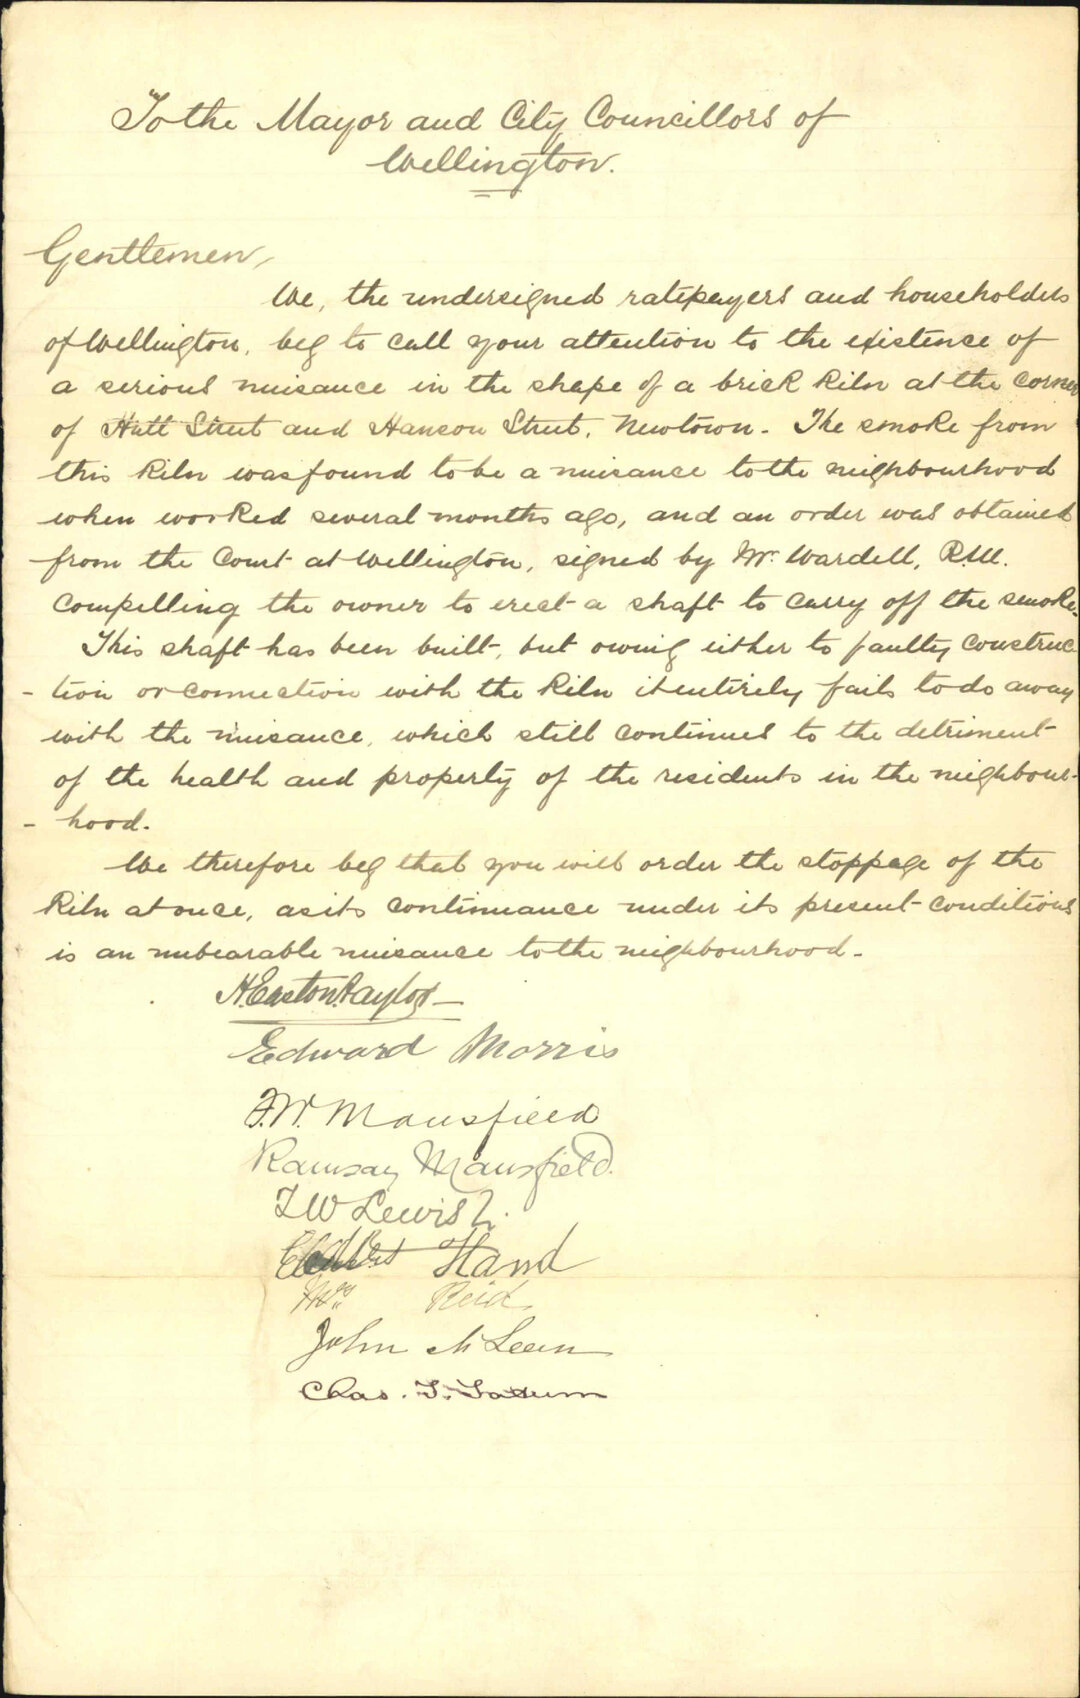 To the Mayor and City Councillors of
Wellington.
Gentlemen,
We, the undersigned ratepayers and householders
of Wellington, beg to call your attention to the existence of
a serious nuisance in the shape of a brick kiln at the corner
of Hutt Street and Hanson Street, Newtown. The smoke from
this kiln was found to be a nuisance to the neighbourhood
when worked several months ago, and an order was obtained
from the Court at Wellington, signed by Mr. Wardell, R.M.
compelling the owner to erect a shaft to carry off the smoke.
This shaft has been built, but owing either to faulty construc-
- tion or connection with the kiln it entirely fails to do away
with the nuisance, which still continues to the detriment
of the health and property of the residents in the neighbour-
- hood.
We therefore beg that you will order the stoppage of the
kiln at once, as its continuance under its present conditions
is an unbearable nuisance to the neighbourhood -
H. Easton Taylor
Edward Morris
F.W. Mansfield
Ramsay Mansfield.
Lewis
Hand
Mrs Reid
John McLean
Chas. T. Tatum